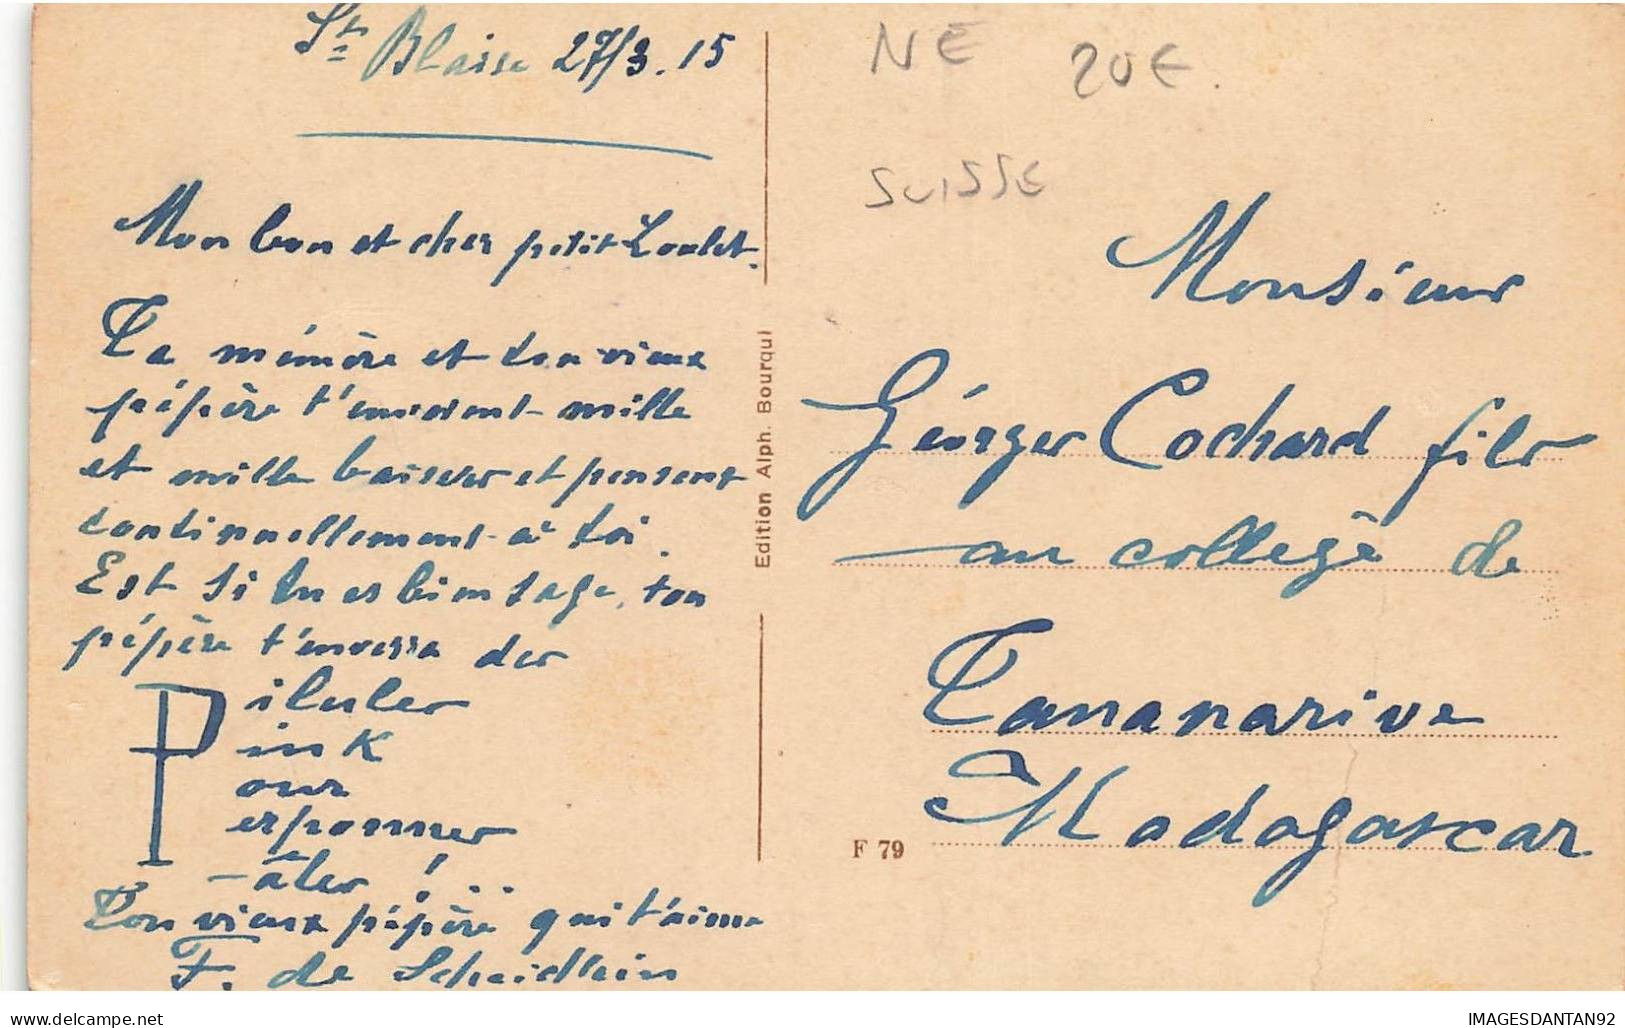 St Blaise 27/3.15
Mon bon et cher petit Loulet.
Ta mémère et ton vieux
pépère t'envoient mille
et mille baisers et pensent
continuellement à toi.
Est si tu es bien sage, ton
pépère t'enverra des
Pilules
Pink
Pour
Personnes
Pâles !..
Ton vieux pépère qui t'aime
F. de Scheidlin
Edition Alph. Bourqui
NE 20€.
SUISSE
Monsieur
Géorges Cochard fils
au collège de
Tananarive
Madagascar
F 79
delcampe.net
IMAGESDANTAN92